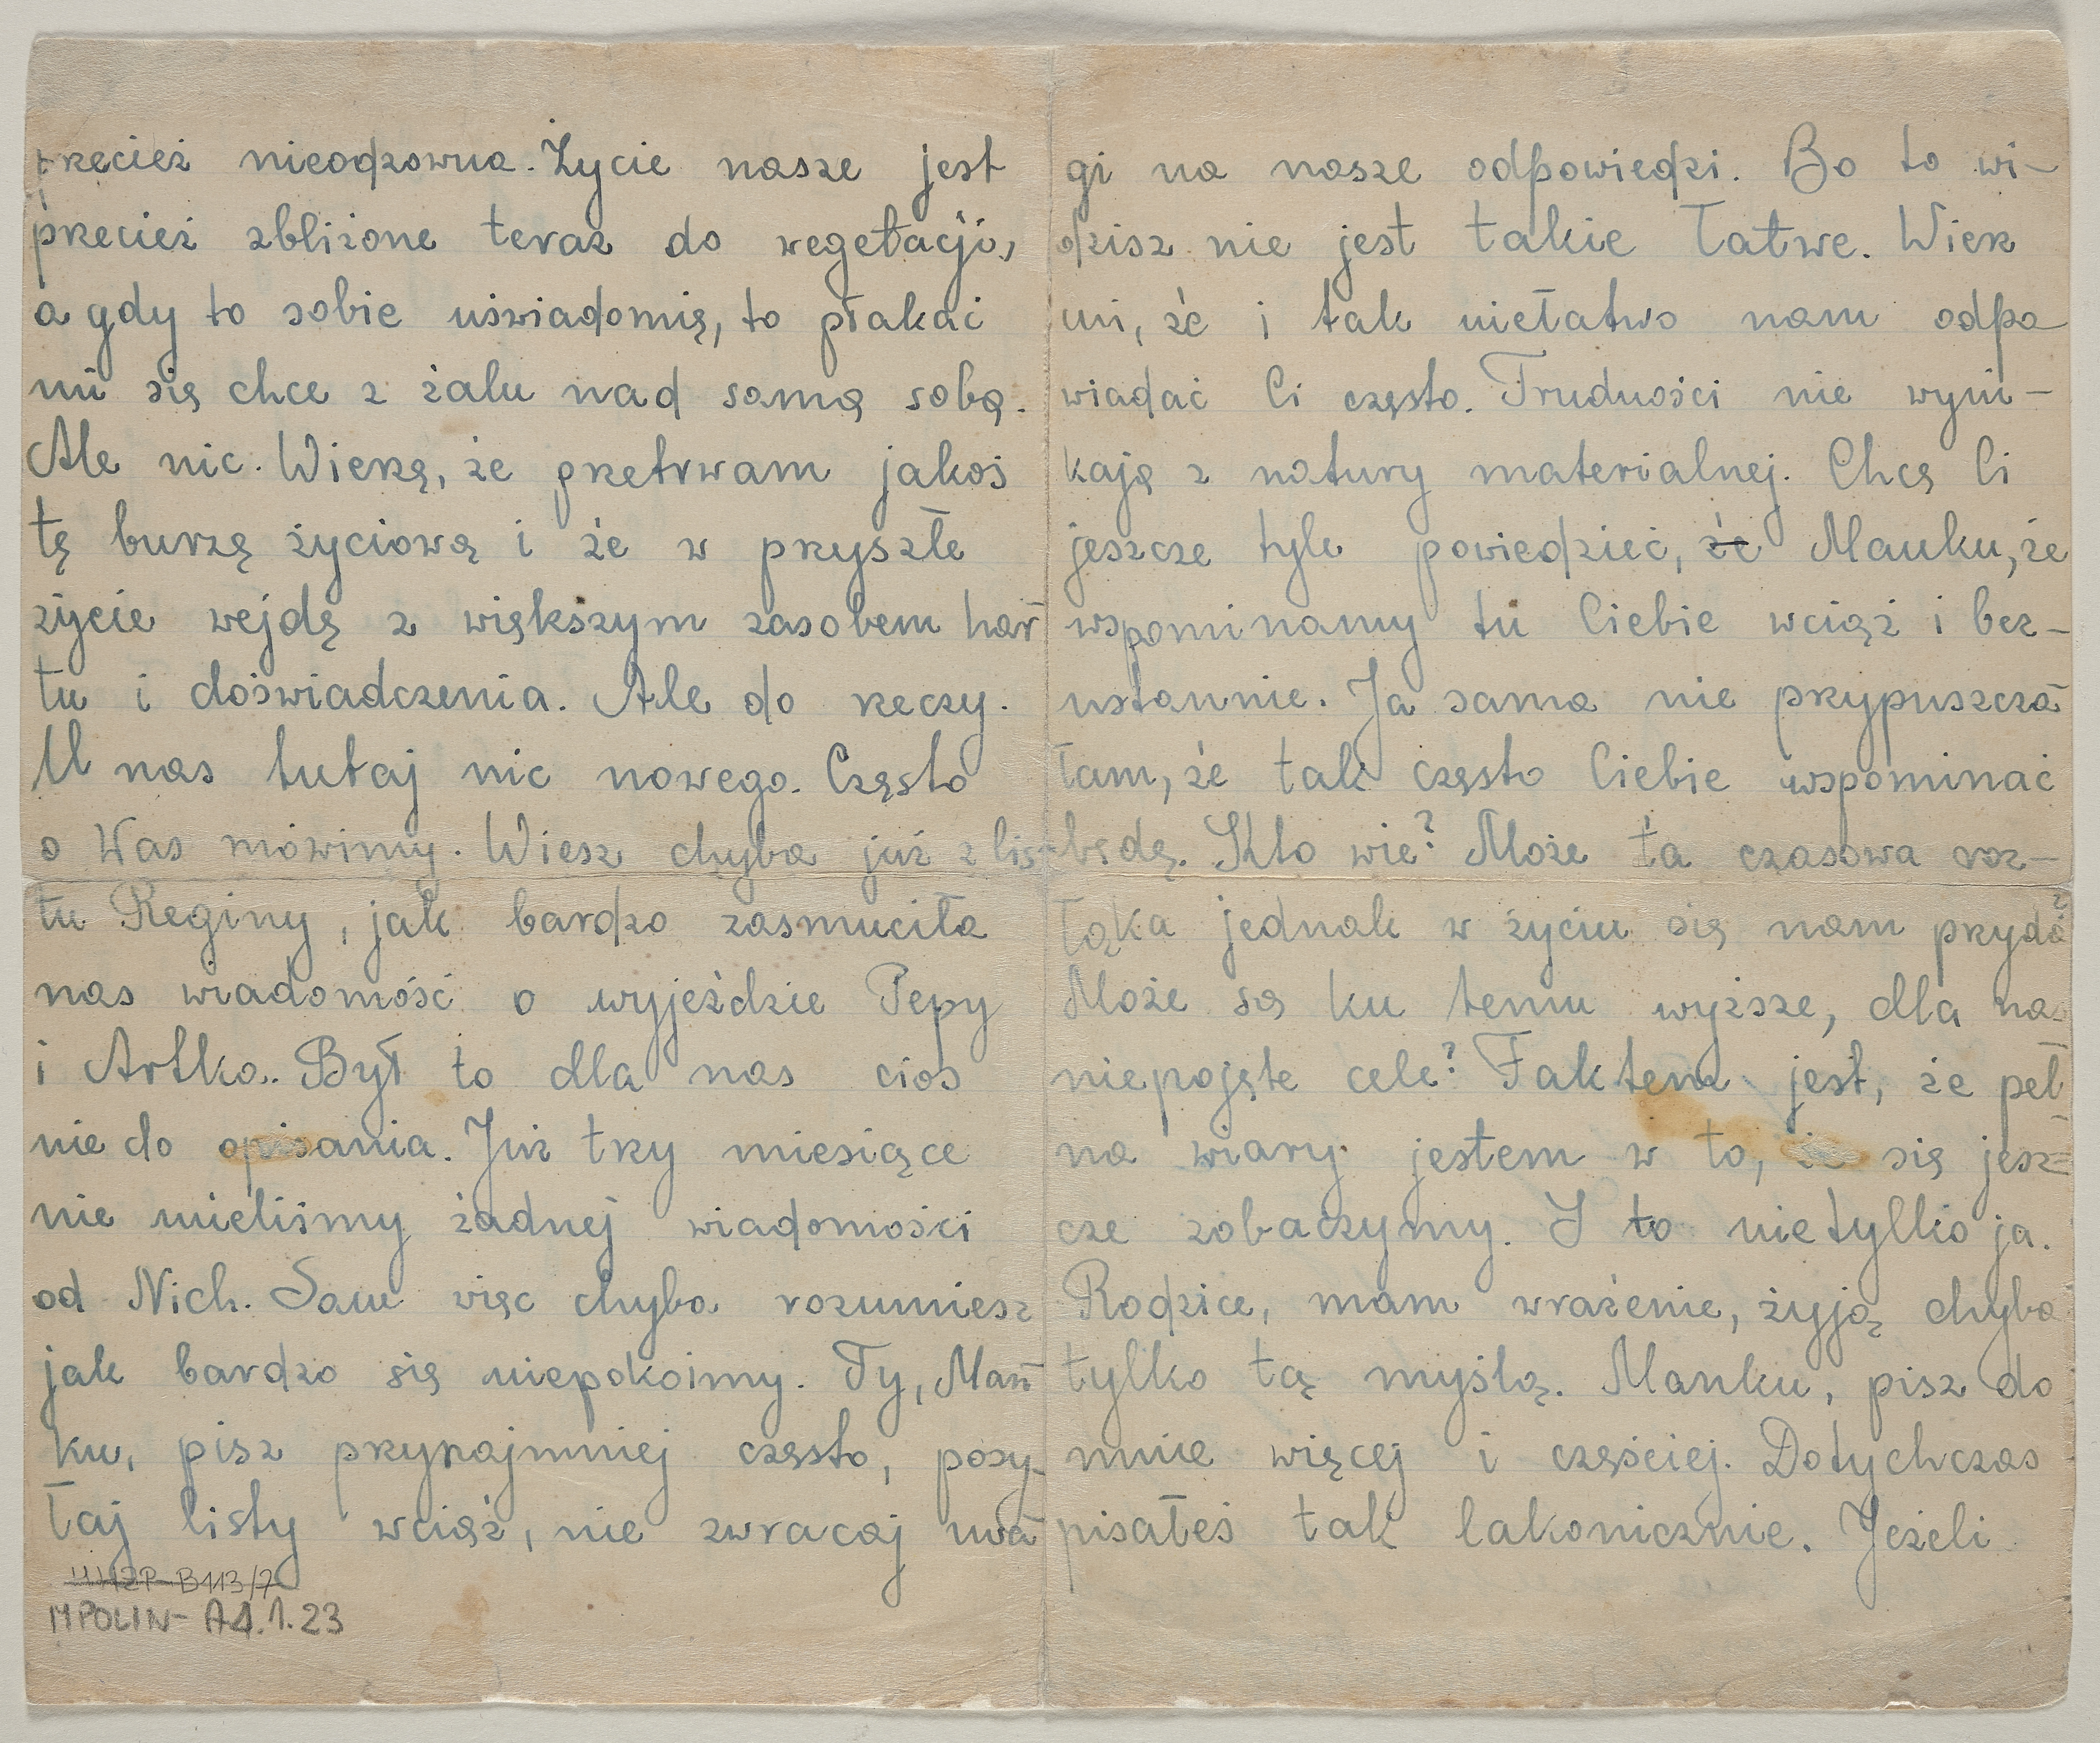 przecież nieodzowna. Życie nasze jest
przecież zbliżone teraz do wegetacji,
a gdy to sobie uświadomię, to płakać
mi się chce z żalu nad samą sobą.
Ale nic. Wierzę, że przetrwam jakoś
tę burzę życiową i że w przyszłe
życie wejdę z większym zasobem har
tu i doświadczenia. Ale do rzeczy.
U nas tutaj nic nowego. Często
o Was mówimy. Wiesz chyba już z lis-
tu Reginy, jak bardzo zasmuciła
nas wiadomość o wyjeździe Pepy
i Artka. Był to dla nas cios
nie do opisania. Już trzy miesiące
nie mieliśmy żadnej wiadomości
od Nich. Sam więc chyba rozumiesz
jak bardzo się niepokoimy. Ty, Mań
ku, pisz przynajmniej często, posy-
łaj listy wciąż, nie zwracaj uwa
MPOLIN-A4.1.23
gi na nasze odpowiedzi. Bo to wi-
dzisz nie jest takie łatwe. Wierz
mi, że i tak niełatwo nam odpo
wiadać Ci często. Trudności nie wyni-
kają z natury materialnej. Chcę Ci
jeszcze tyle powiedzieć, że Mańku, że
wspominamy tu Ciebie wciąż i bez-
ustannie. Ja sama nie przypuszcza
łam, że tak często Ciebie wspominać
będę. Kto wie? Może ta czasowa roz-
łąka jednak w życiu się nam przyda?
Może są ku temu wyższe, dla nas
niepojęte cele? Faktem jest, że peł
na wiary jestem w to, że się jesz=
cze zobaczymy. I to nietylko ja.
Rodzice, mam wrażenie, żyją chyba
tylko tą myślą. Mańku, pisz do
mnie więcej i częściej. Dotychczas
pisałeś tak lakonicznie. Jeżeli